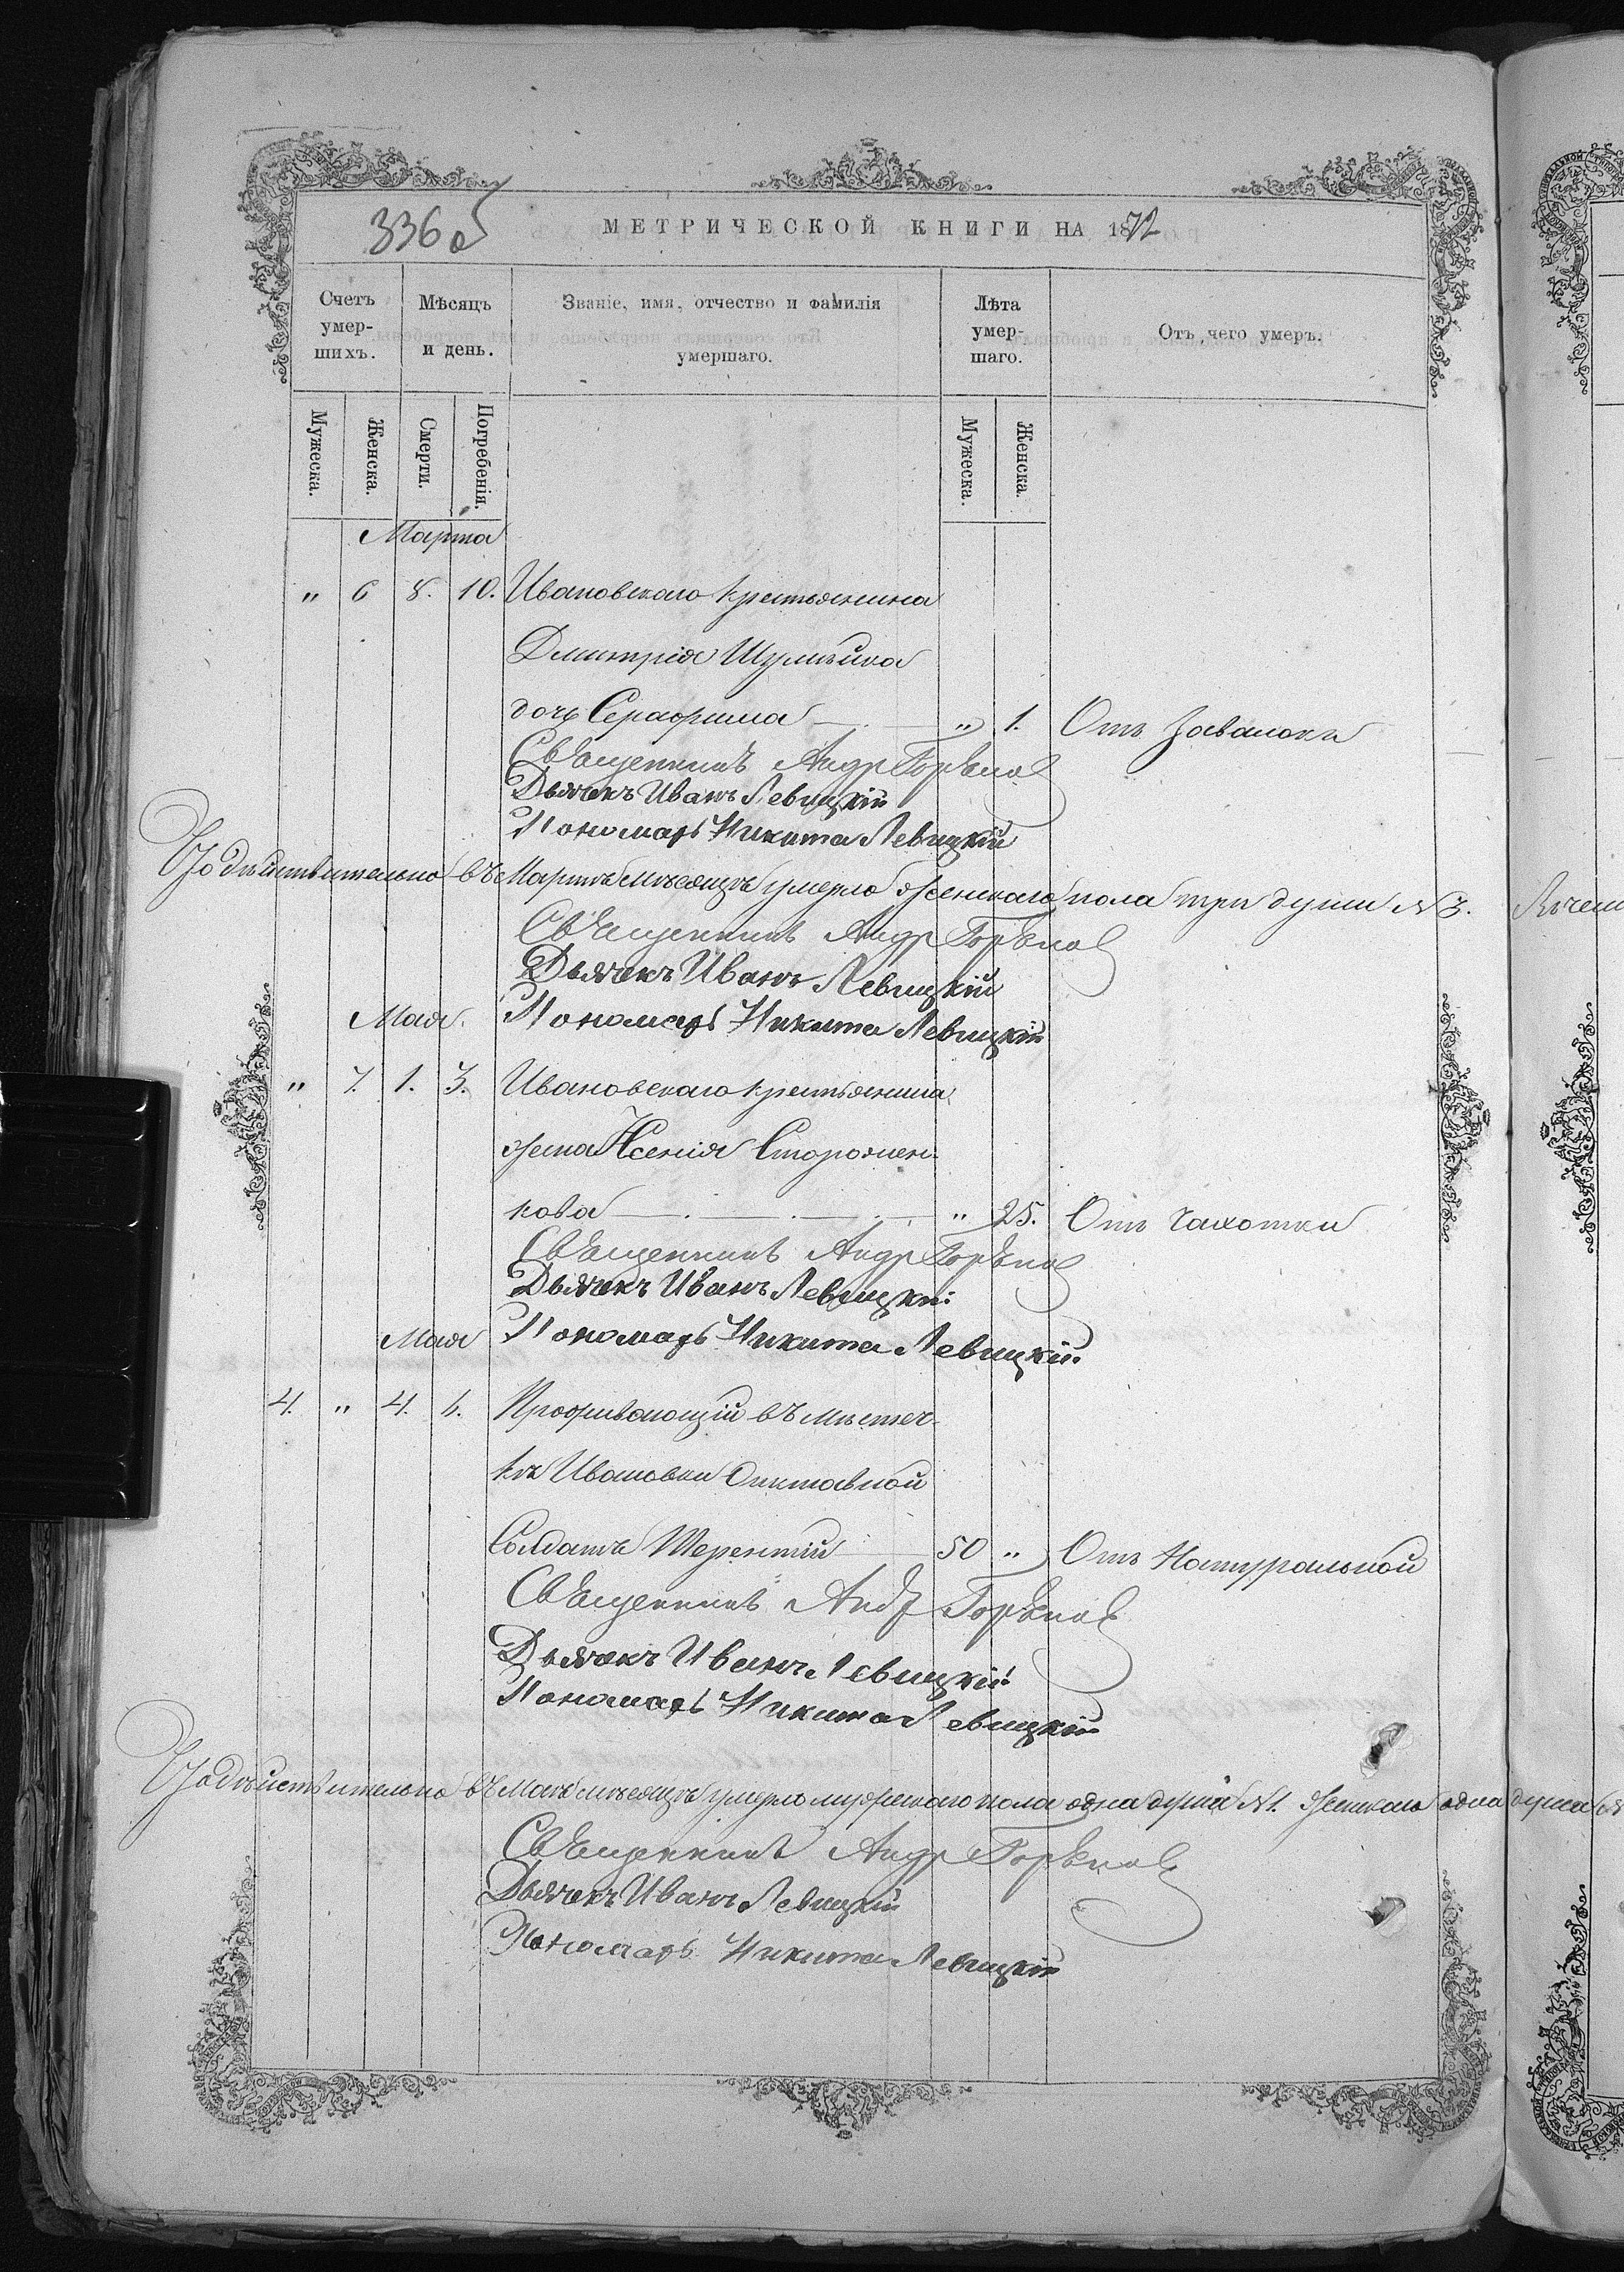 336 об
МЕТРИЧЕСКОЙ КНИГИ НА 1872
Счетъ умер- шихъ.
Мѣсяцъ и день.
Званіе, имя, отчество и фамилія умершаго.
Лѣта умер- шаго.
Отъ чего умеръ.
Мужеска. Женска. Смерти. Погребенія. Мужеска. Женска.
Марта
" 6 8. 10. Ивановскаго крестьянина
Дмитрія Шульжика
дочь Серафима " 1. Отъ Завалокъ
Священникъ Андр
Дьячекъ Иванъ Левицкій
Пономарь Никита Левицкій
Что дѣйствительно въ Мартѣ мѣсяцѣ умерло женскаго пола три души № 3.
Священникъ Андр
Дьячекъ Иванъ Левицкій
Мая. Пономарь Никита Левицкій
" 7. 1. 3. Ивановскаго крестьянина
жена Ксенія Сторожен-
кова " 25. Отъ Чахотки
Священникъ Андр
Дьячекъ Иванъ Левицкій
Мая Пономарь Никита Левицкій
4. " 4. 6. Проживающій въ мѣстеч-
кѣ Ивановки Отставной
Солдатъ Терентій 50 " Отъ Натуральной
Священникъ Андр
Дьячекъ Иванъ Левицкій
Пономарь Никита Левицкій
Что дѣйствительно въ Маѣ мѣсяцѣ умерло мужескаго пола одна душа № 1. женскаго одна душа №
Священникъ Андр
Дьячекъ Иванъ Левицкій
Пономарь Никита Левицкій